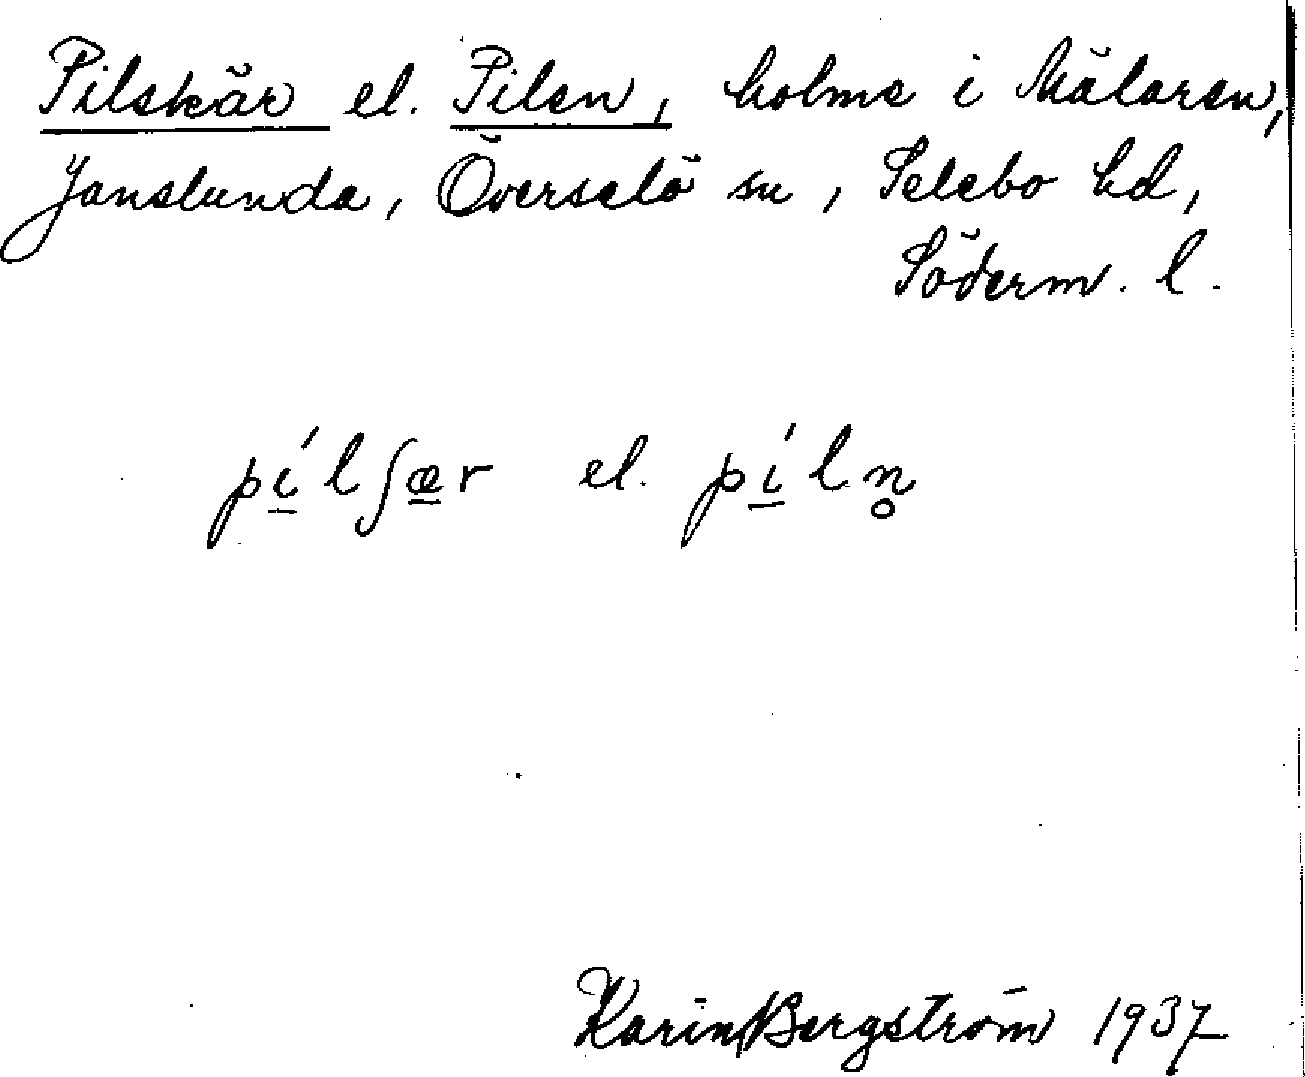 Pilskär el. Pilen, holme i Mälaren,
Janslunda, Överselö sn, Selebo hd,
Söderm. l.
pí̲lʃæ̲r el. pí̲ln̥
Karin Bergström 1937